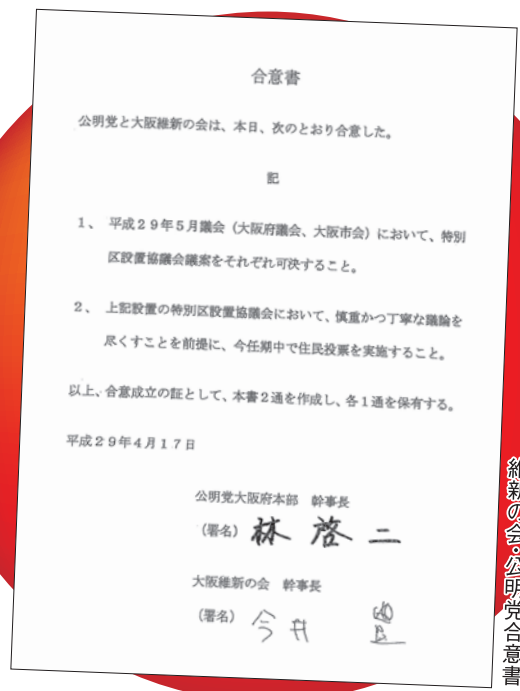 合意書
公明党と大阪維新の会は、本日、次のとおり合意した。
記
1、 平成29年5月議会(大阪府議会、大阪市会)において、特別
区設置協議会議案をそれぞれ可決すること。
2、 上記設置の特別区設置協議会において、慎重かつ丁寧な議論を
尽くすことを前提に、今任期中で住民投票を実施すること。
以上、合意成立の証として、本書2通を作成し、各1通を保有する。
平成29年4月17日
公明党大阪府本部 幹事長
(署名) 林 啓 二
大阪維新の会 幹事長
(署名) 今 井 豊
維新の会・公明党合意書